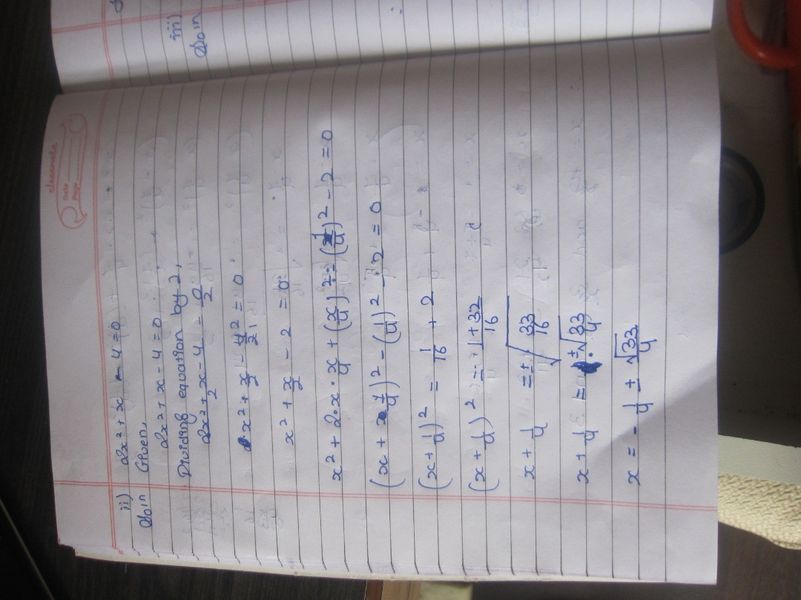 classmate
Date
Page
ii) 2x² + x - 4 = 0
Soln Given,
2x² + x - 4 = 0
Dividing equation by 2,
2x² + x - 4 / 2 = 0/2
x² + x/2 - 4²/2 = 0
x² + x/2 - 2 = 0
x² + 2·x·x/4 + (x/4)² - (1/4)² - 2 = 0
(x + 1/4)² - (1/4)² - 2 = 0
(x + 1/4)² = 1/16 + 2
(x + 1/4)² = 1 + 32 / 16
x + 1/4 = ±√33/16
x + 1/4 = ±√33/4
x = - 1/4 ± √33/4
iii)
Soln